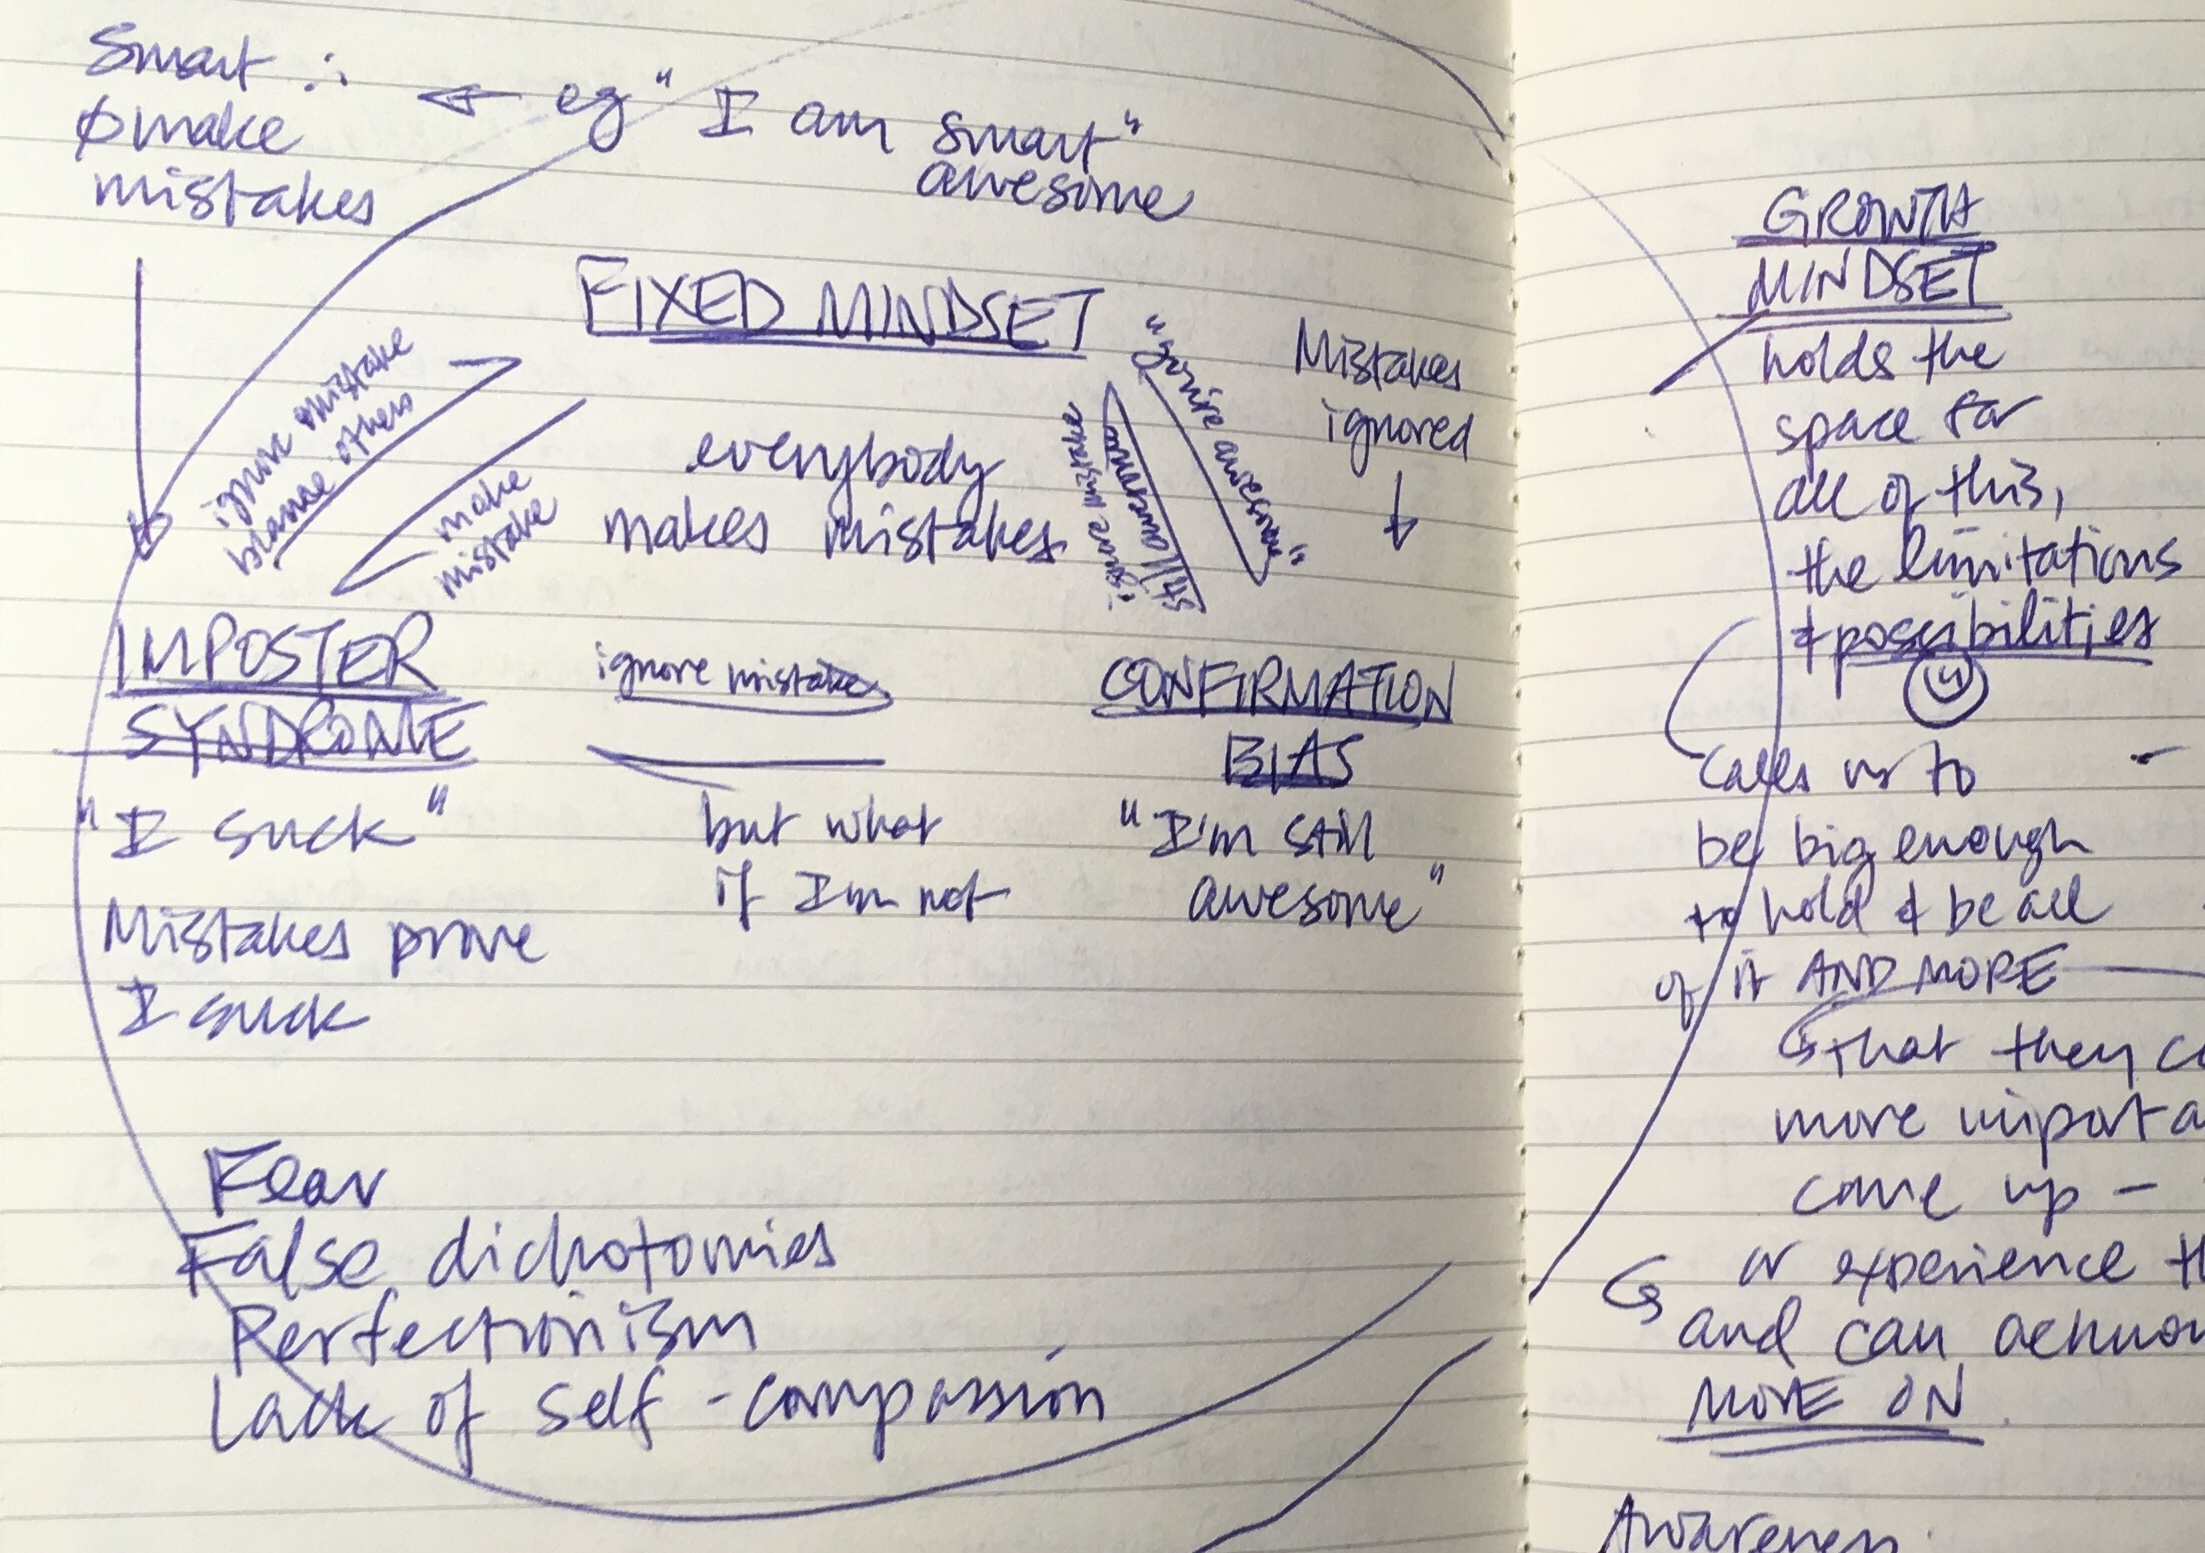 Smart ∴
∅ make
mistakes
← eg "I am smart"
awesome
FIXED MINDSET
ignore mistake
blame others
make
mistake
everybody
makes mistakes
ignore mistake
still awesome
"you're awesome"
Mistakes
ignored
IMPOSTER
SYNDROME
"I suck"
Mistakes prove
I suck
ignore mistake
but what
if I'm not
CONFIRMATION
BIAS
"I'm still
awesome"
Fear
False dichotomies
Perfectionism
Lack of self-compassion
GROWTH
MINDSET
holds the
space for
all of this,
the limitations
& possibilities
calls us to
be big enough
to hold & be all
of it AND MORE
that they
more
come up –
or experience
and can
MOVE ON
Awareness